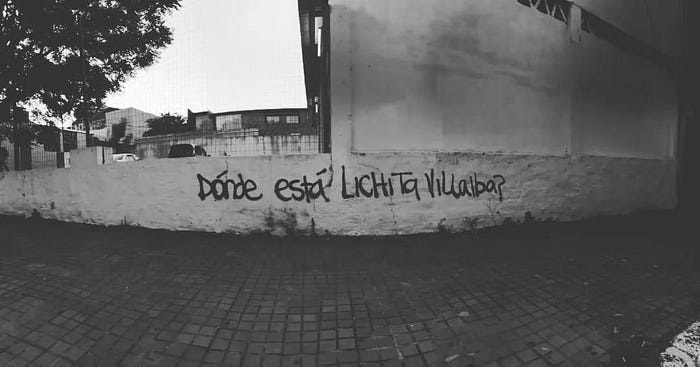 Dónde está LICHITA VILLALBA?